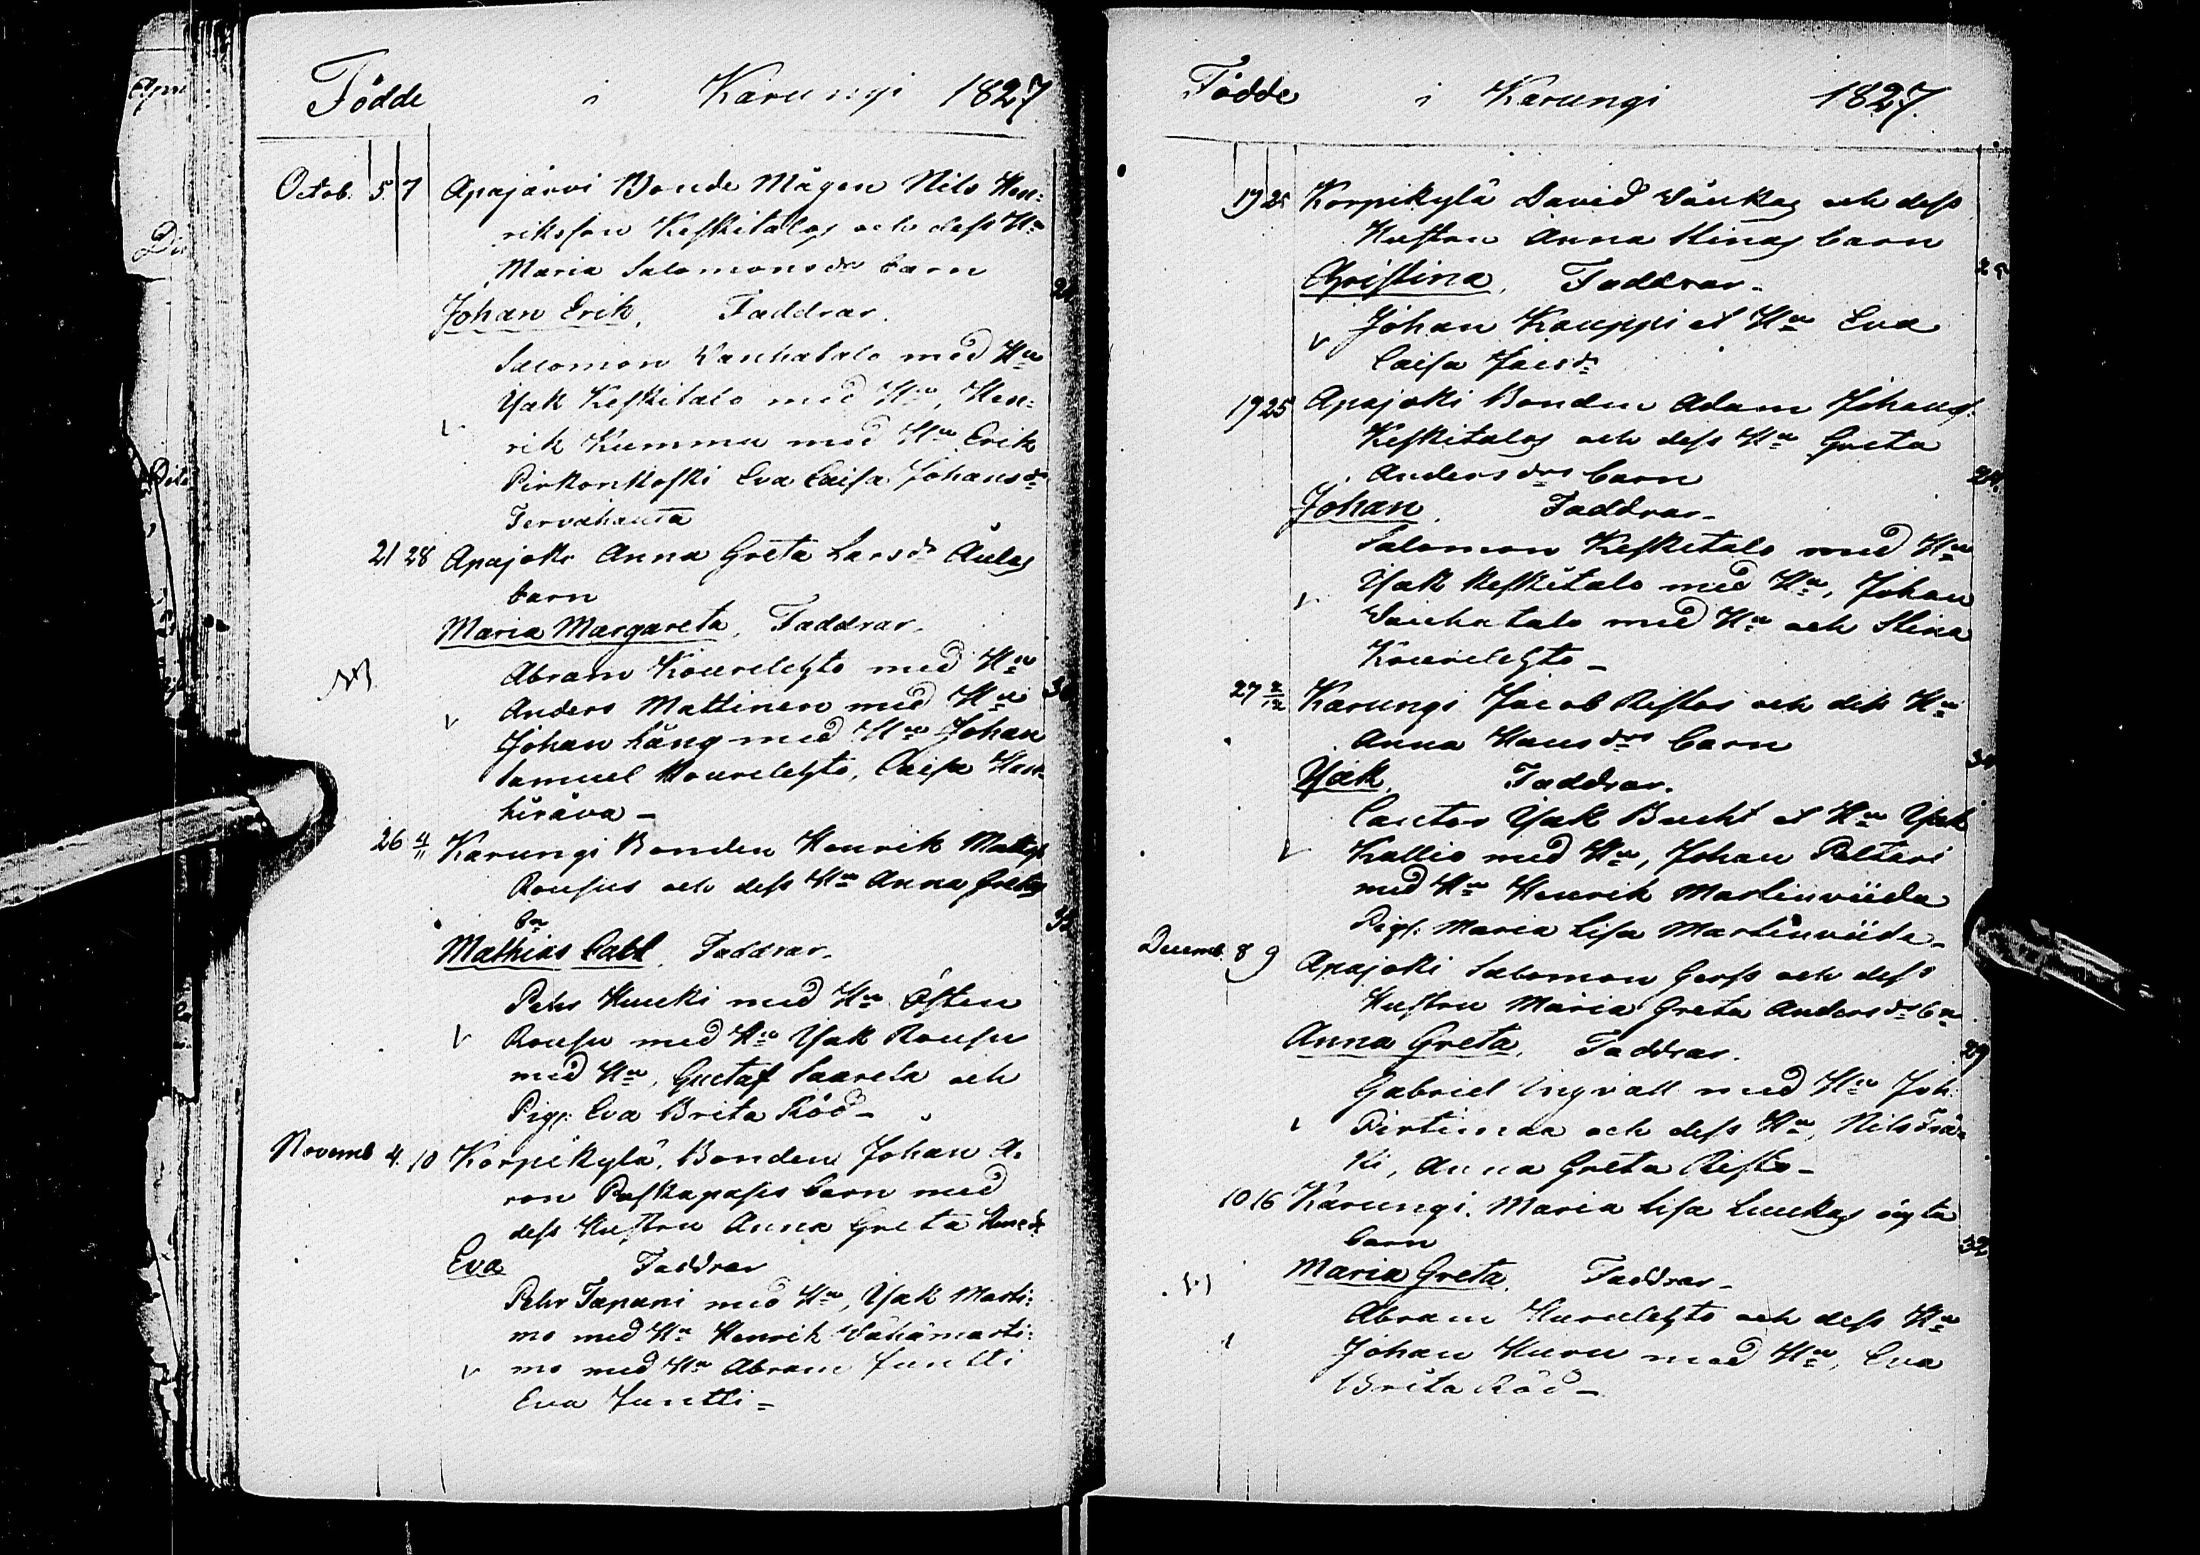 Födde i Karungi 1827
Octob. 5. 7 Apajärvi Bonde Mågen Nils Hen=
riksson Keskitalos och dess Hu
Maria Salomonsdr barn
Johan Erik. Faddrar.
Salomon Vanhatalo med Hu
Isak Keskitalo med Hu, Hen=
rik Kummu med Hu Erik
Pirkonkoski Eva Caisa Johansdr
Tervahauta
21 28 Apajoki Anna Greta Larsdr Aulas
barn
Maria Margareta, Faddrar.
Abram Kourilehto med Hu
Anders Mattinen med Hu
Johan Lång med Hu Johan
Samuel Kourilehto, Caisa
26 4/11 Karungi Bonden Henrik Matts
Rousus och dess Hu Anna Gretas
bn
Mathias Faddrar.
Pehr Huuki med Hu Östen
Rousu med Hu Isak Rousu
med Hu, Gustaf Saarela och
Pig. Eva Brita Röd
Novemb 4. 10 Korpikylä, Bonden Johan A.
ron barn med
dess Hustru Anna Greta
Eva Faddrar
Pehr Tapani med Hu, Isak Marti=
mo med Hu Henrik Vähämarti=
mo med Hu Abram Juntti
Eva Juntti =
Födde i Karungi 1827.
19 25 Korpikylä David och dess
Hustru Anna Stinas barn
Christina, Faddrar.
Johan Kauppi et Hu Eva
Caisa Jacsdr
19 25 Apajoki Bonden Adam Johans.
Keskitalos och dess Hu Greta
Andersdrs barn
Johan. Faddrar.
Salomon Keskitalo med Hu
Isak Keskitalo med Hu, Johan
Vanhatalo med Hu och Stina
Kourilehto
27 2/12 Karungi Jacob Ristos och des Hu
Anna Hansdrs barn
Isak. Faddrar.
Cantor Isak Bucht et Hu Isak
Kallio med Hu, Johan Pelteri
med Hu Henrik Martinviida
Pig. Maria Lisa Martinviida
Decemb. 8 9 Apajoki Salomon och dess
Hustru Maria Greta Andersdrs bn
Anna Greta. Faddrar.
Gabriel Ingvall med Hu Joh.
Pirtimaa och dess Hu, Nils
ki, Anna Greta Risto
10 16 Karungi. Maria Lisa Luukas oägta
barn
Maria Greta Faddrar
Abram och dess Hu
Johan Huru med Hu, Eva
Brita Röd